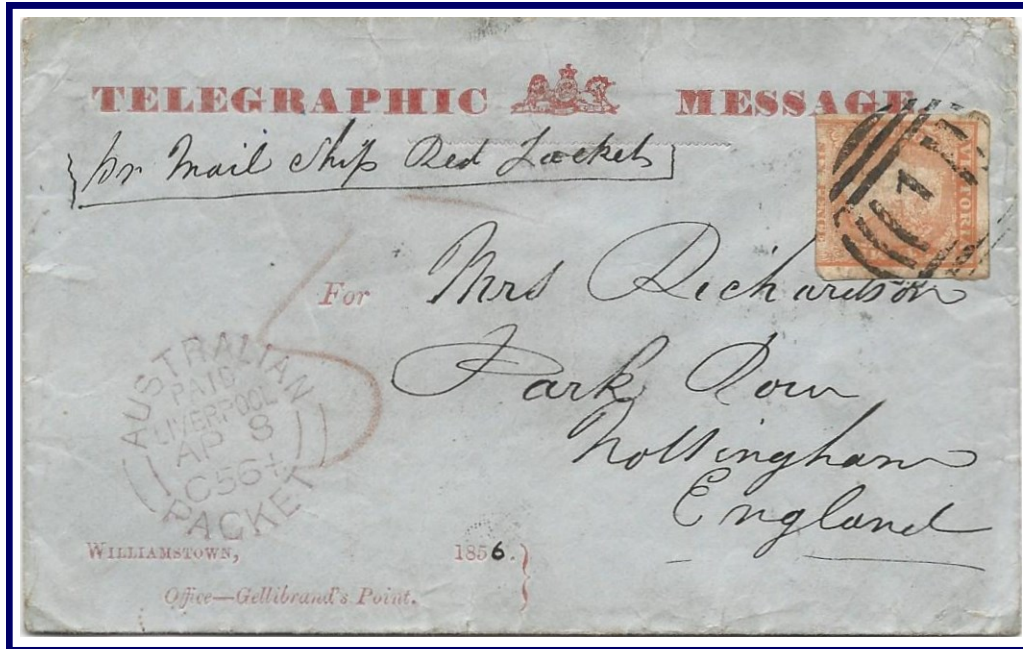 TELEGRAPHIC MESSAGE
pr Mail Ship Red Jacket
VICTORIA
7
For Mrs Richardson
Park Row
Nottingham
England
AUSTRALIAN
PAID
LIVERPOOL
AP 8
C56
PACKET
5
WILLIAMSTOWN, 1856.
Office—Gellibrand's Point.